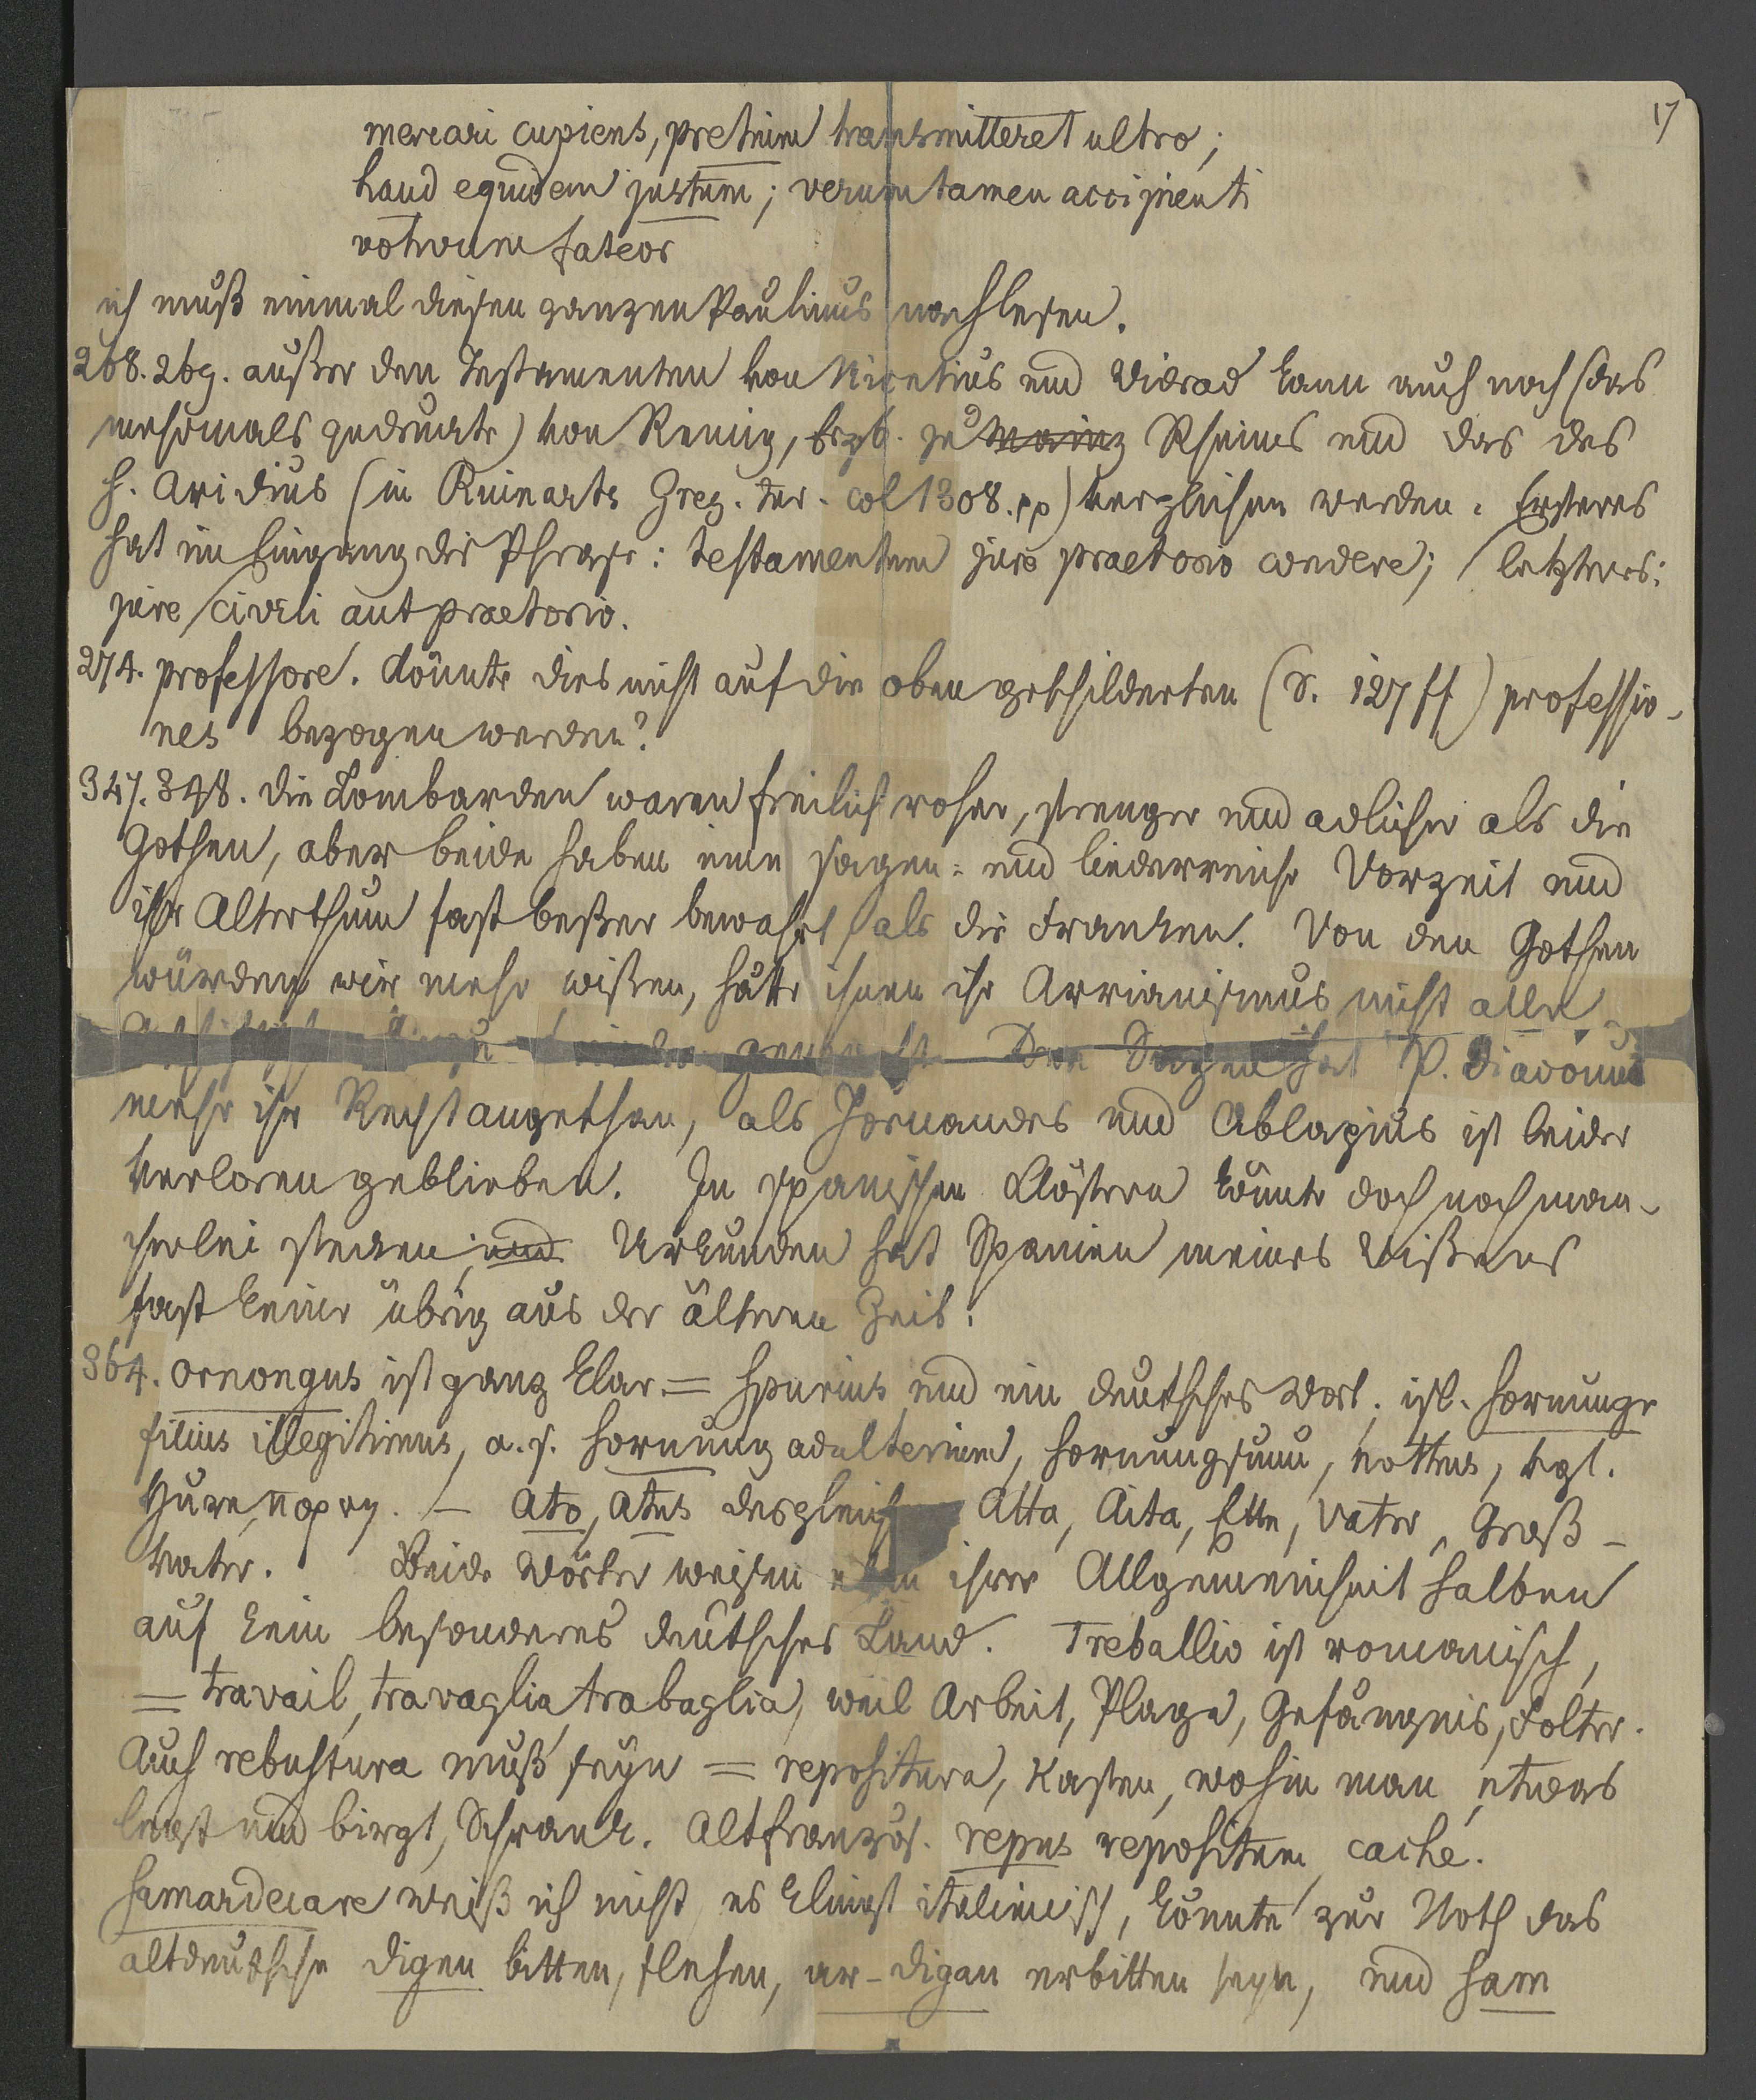 17
mercari cupiens, pretium transmitteret ultro;
haud equidem justum; verum tamen accipienti
votivum fateor
ich muß einmal diesen ganzen Paulinus nachlesen.
268.269. außer den Testamenten von Nicetius und Widrad kann auch noch (das
mehrmals gedruckte) von Remig, Erzb. zu Mainz Rheims und das des
h. Aridius (in Ruinarts Greg. tur. col 1308. pp) verglichen werden. Ersteres
hat im Eingang die Phrase: testamentum jure praetorio condere; letzteres:
jure civili aut praetorio.
274. professore. könnte dies nicht auf die oben geschilderten (S. 127 ff) professio-
nes bezogen werden?
347.348. die Lombarden waren freilich roher, strenger und adlicher als die
Gothen, aber beide haben eine sagen- und liederreiche Vorzeit und
ihr Alterthum fast beßer bewahrt als die Franken. Von den Gothen
würden wir mehr wißen, hätte ihnen ihr Arrianismus nicht alle
Den Sagen hat P. Diaconus
mehr ihr Recht angethan, als Jornandes und Ablavius ist leider
verloren geblieben. In spanischen Klöstern könnte doch noch man-
cherlei stecken; und Urkunden hat Spanien meines Wißens
fast keine übrig aus der älteren Zeit.
364. ornongus ist ganz klar = spurius und ein deutsches Wort. isl. hornungr
filius illegitimus, a.s. hornung adulterium, hornungsunu, nothus, vgl.
Hure, πορνη. – Ato, Atus desgleich Atta, Aita, Ette, Vater, Groß-
vater. Beide Wörter weisen eben ihrer Allgemeinheit halben
auf kein besonderes deutsches Land. Treballio ist romanisch,
= travail, travaglia, trabaglia, weil Arbeit, Plage, Gefängnis, Folter.
Auch rebustura muß seyn = repositura, Kasten, wohin man etwas
legt und birgt, Schrank. Altfranzös. repus repositum, caché.
hamardecare weiß ich nicht, es klingt italienisch, könnte zur Noth das
altdeutsche digen bitten, flehen, ar-digan erbitten seyn, und ham